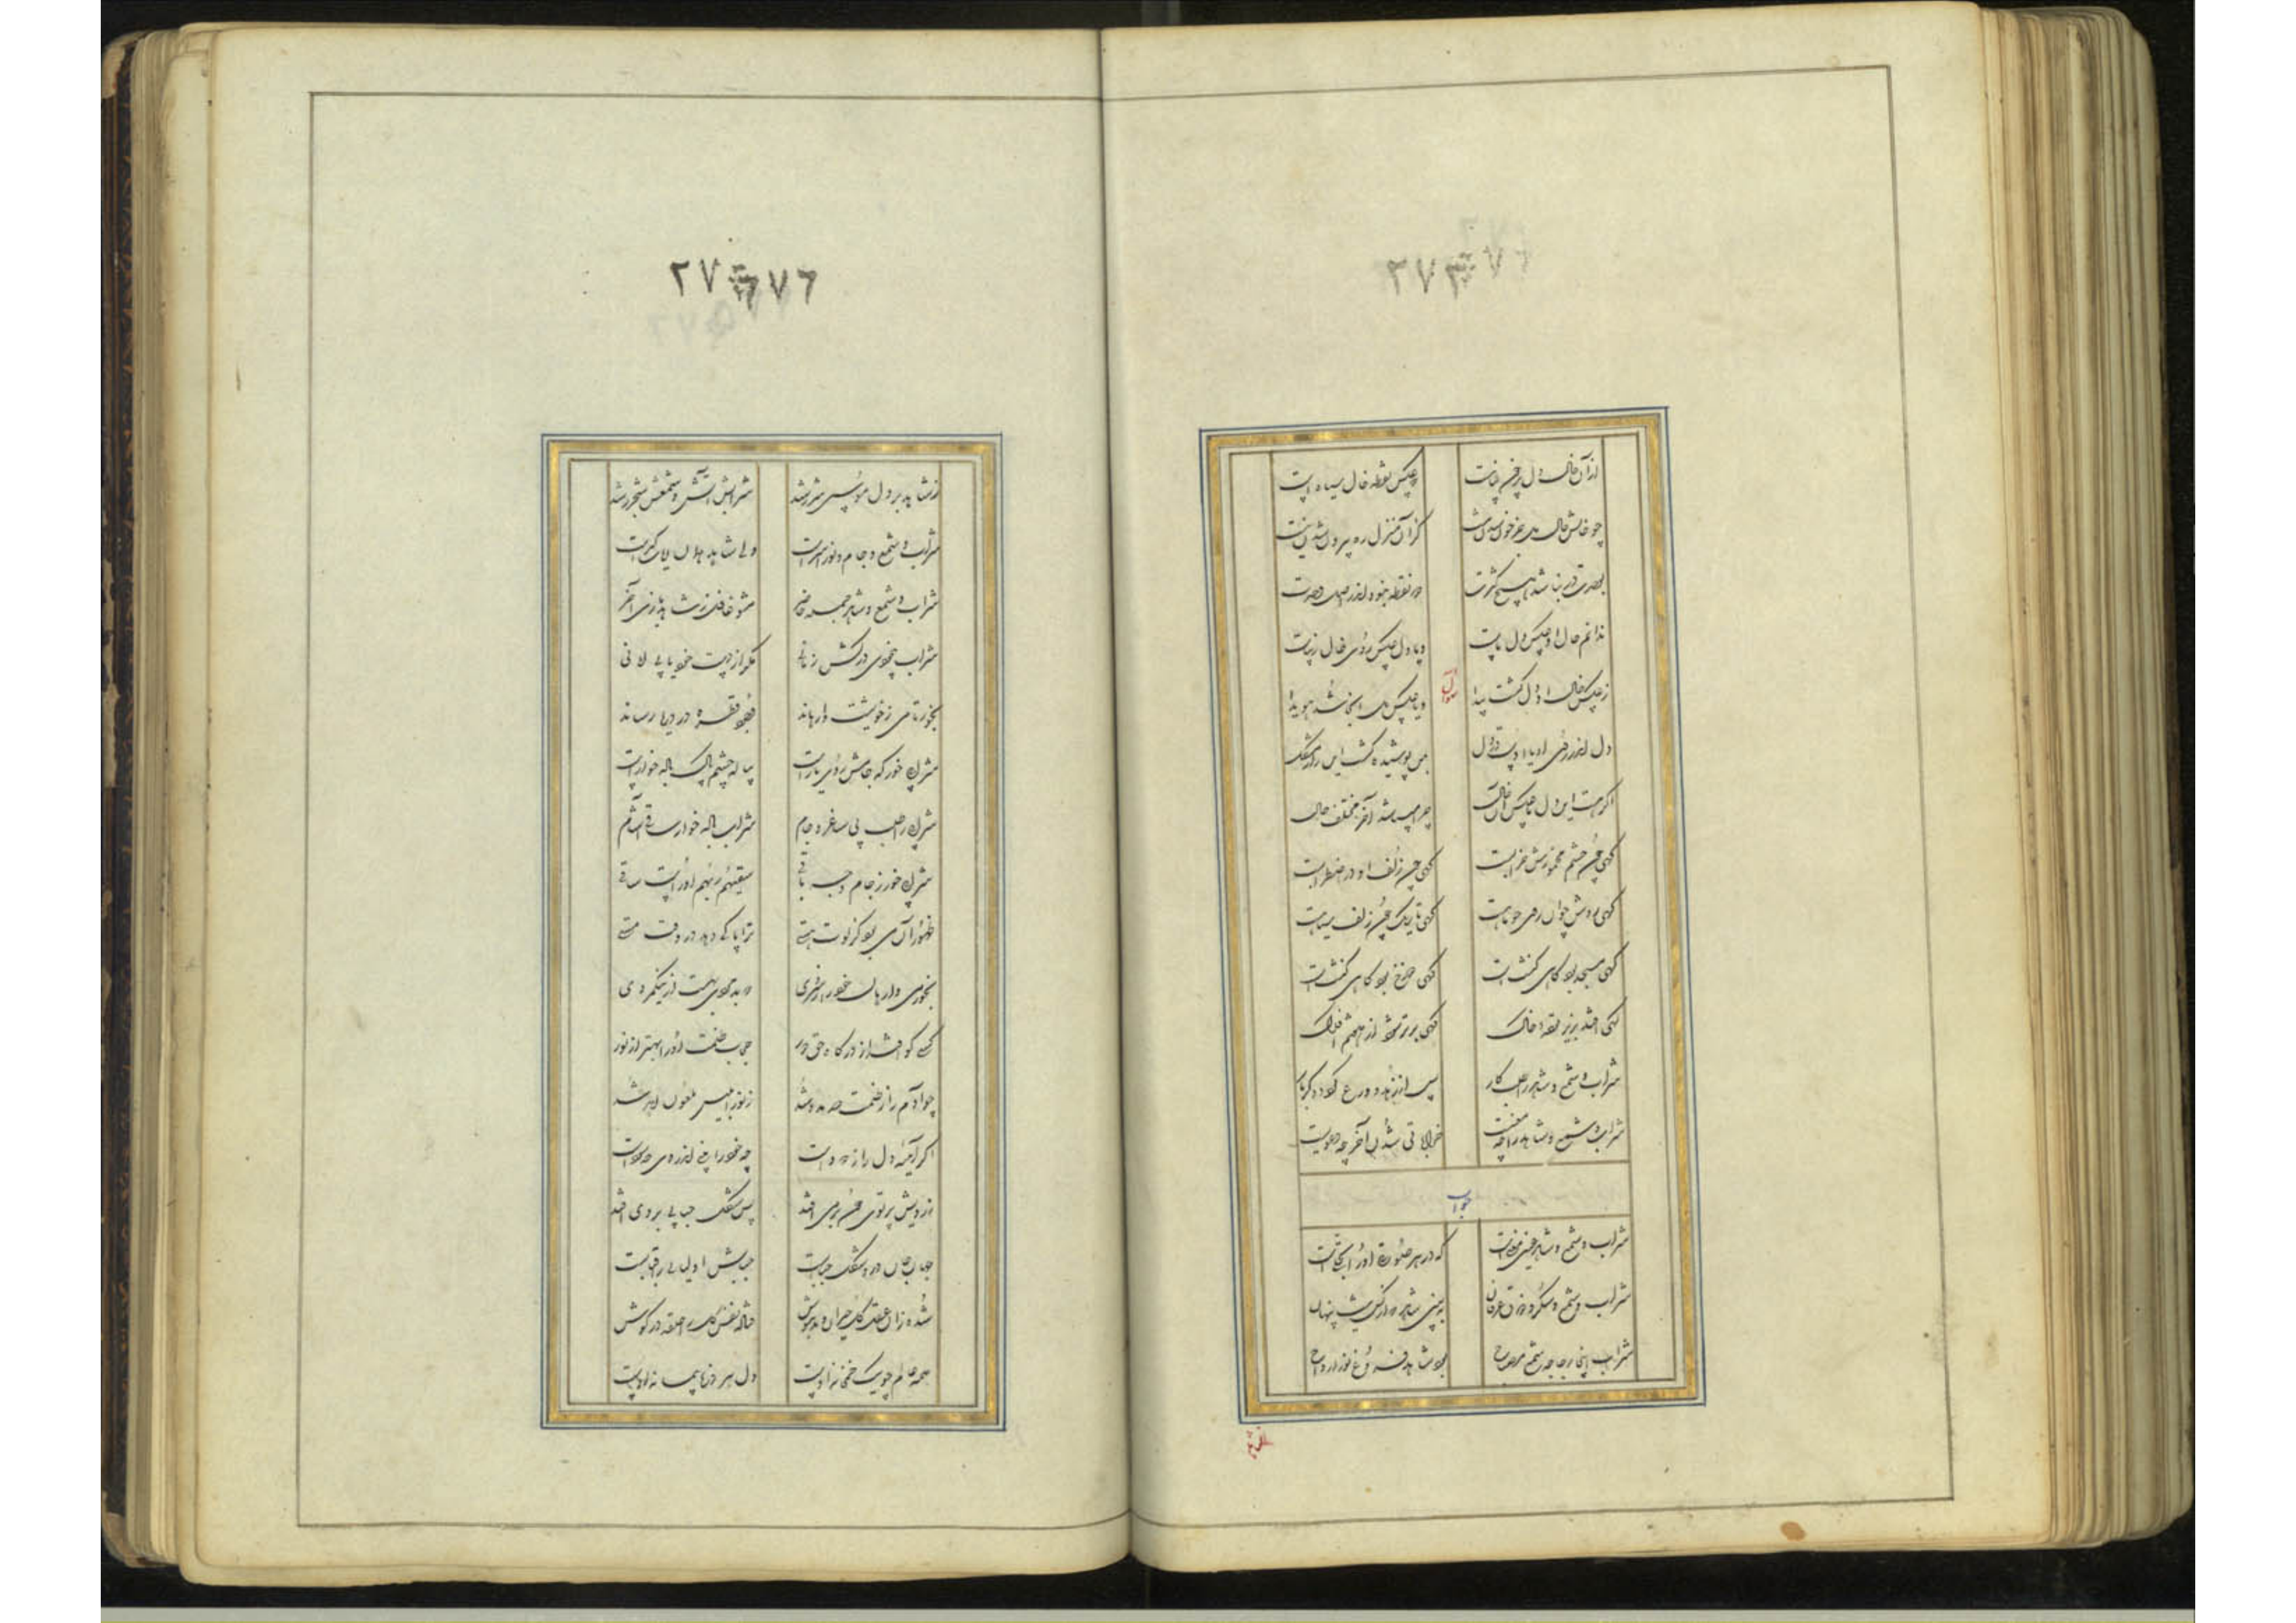 ازآن خالش دل پرخون تباهست که عکس نقطه خال سیاه است
چو خالش حال دل جز خون شدن نیست کزآن منزل ره بیرون شدن نیست
بوحدت در نباشد هیچ کثرت دو نقطه نبود اندر اصل وحدت
ندانم خال او عکس دل ماست ویا دل عکس روی خال زیباست
ز عکس خال او دل گشت پیدا ویا عکس دل آنجا شد هویدا
دل اندر روی او یا اوست در دل بمن پوشیده گشت این راز مشکل
اگر هست این دل ما عکس آن خال چرا میباشد آخر مختلف حال
گهی چون چشم مخمورش خرابست گهی چون زلف او در اضطرابست
گهی روشن چو آن روی چو ماهست گهی تاریک چون زلف سیاهست
گهی مسجد بود گاهی کنشت است گهی دوزخ بود گاهی بهشت است
گهی افتد بزیر توده خاک گهی برتر شود از هفتم افلاک
شراب و شمع و شاهد را طلب کار پس از زهد و ورع گردد دگر بار
سوال
شراب و شمع و شاهد را چه معنیست خراباتی شدن آخر چه دعویست
جواب
شراب و شمع و شاهد عین معنیست که در هر صورتی او را تجلیست
شراب و شمع و سکر و ذوق عرفان ببین شاهد که از کس نیست پنهان
شراب اینجا زجاجه شمع مصباح بود شاهد فروغ نور ارواح
۲۷۶
ز شاهد بر دل موسی شرر شد شرابش آتش و شمعش شجر شد
شراب و شمع و جام و نور اسراست ولی شاهد همان آیات کبراست
شراب و شمع و شاهد جمله حاضر مشو غافل ز شاهد بازی آخر
شراب بیخودی درکش زمانی مگر از دست خود یابی امانی
بخور تا می ز خویشت وارهاند وجود قطره در دریا رساند
شرابی خور که جامش روی یارست پیاله چشم پاک باده خوارست
شرابی را طلب بی ساغر و جام شراب باله خوار ساقی آشام
شرابی خور ز جام وجه باقی سقیهم ربهم او راست ساقی
طهور آن می بود کز لوث هستی ترا پاکی دهد در وقت مستی
بخور می وارهان خود را ز سردی که بد مستی بهست از نیکمردی
کسی کو افتد از درگاه حق دور حجاب ظلمت او را بهتر از نور
چو آدم را ز ظلمت صد مدد شد ز نور ابلیس ملعون ابد شد
اگر آئینه دل را زدودست چه خود را بیند اندر وی چه سودست
ز رویش پرتوی چون بر می افتد بسی شکل حبابی بر وی افتد
جهان جان در و شکل حبابست حبابش اولیایی را قبابست
شده زان عقل کل حیران و مدهوش فتاده نفس کل را حلقه در گوش
همه عالم چو یک خمخانه اوست دل هر ذره پیمانه اوست